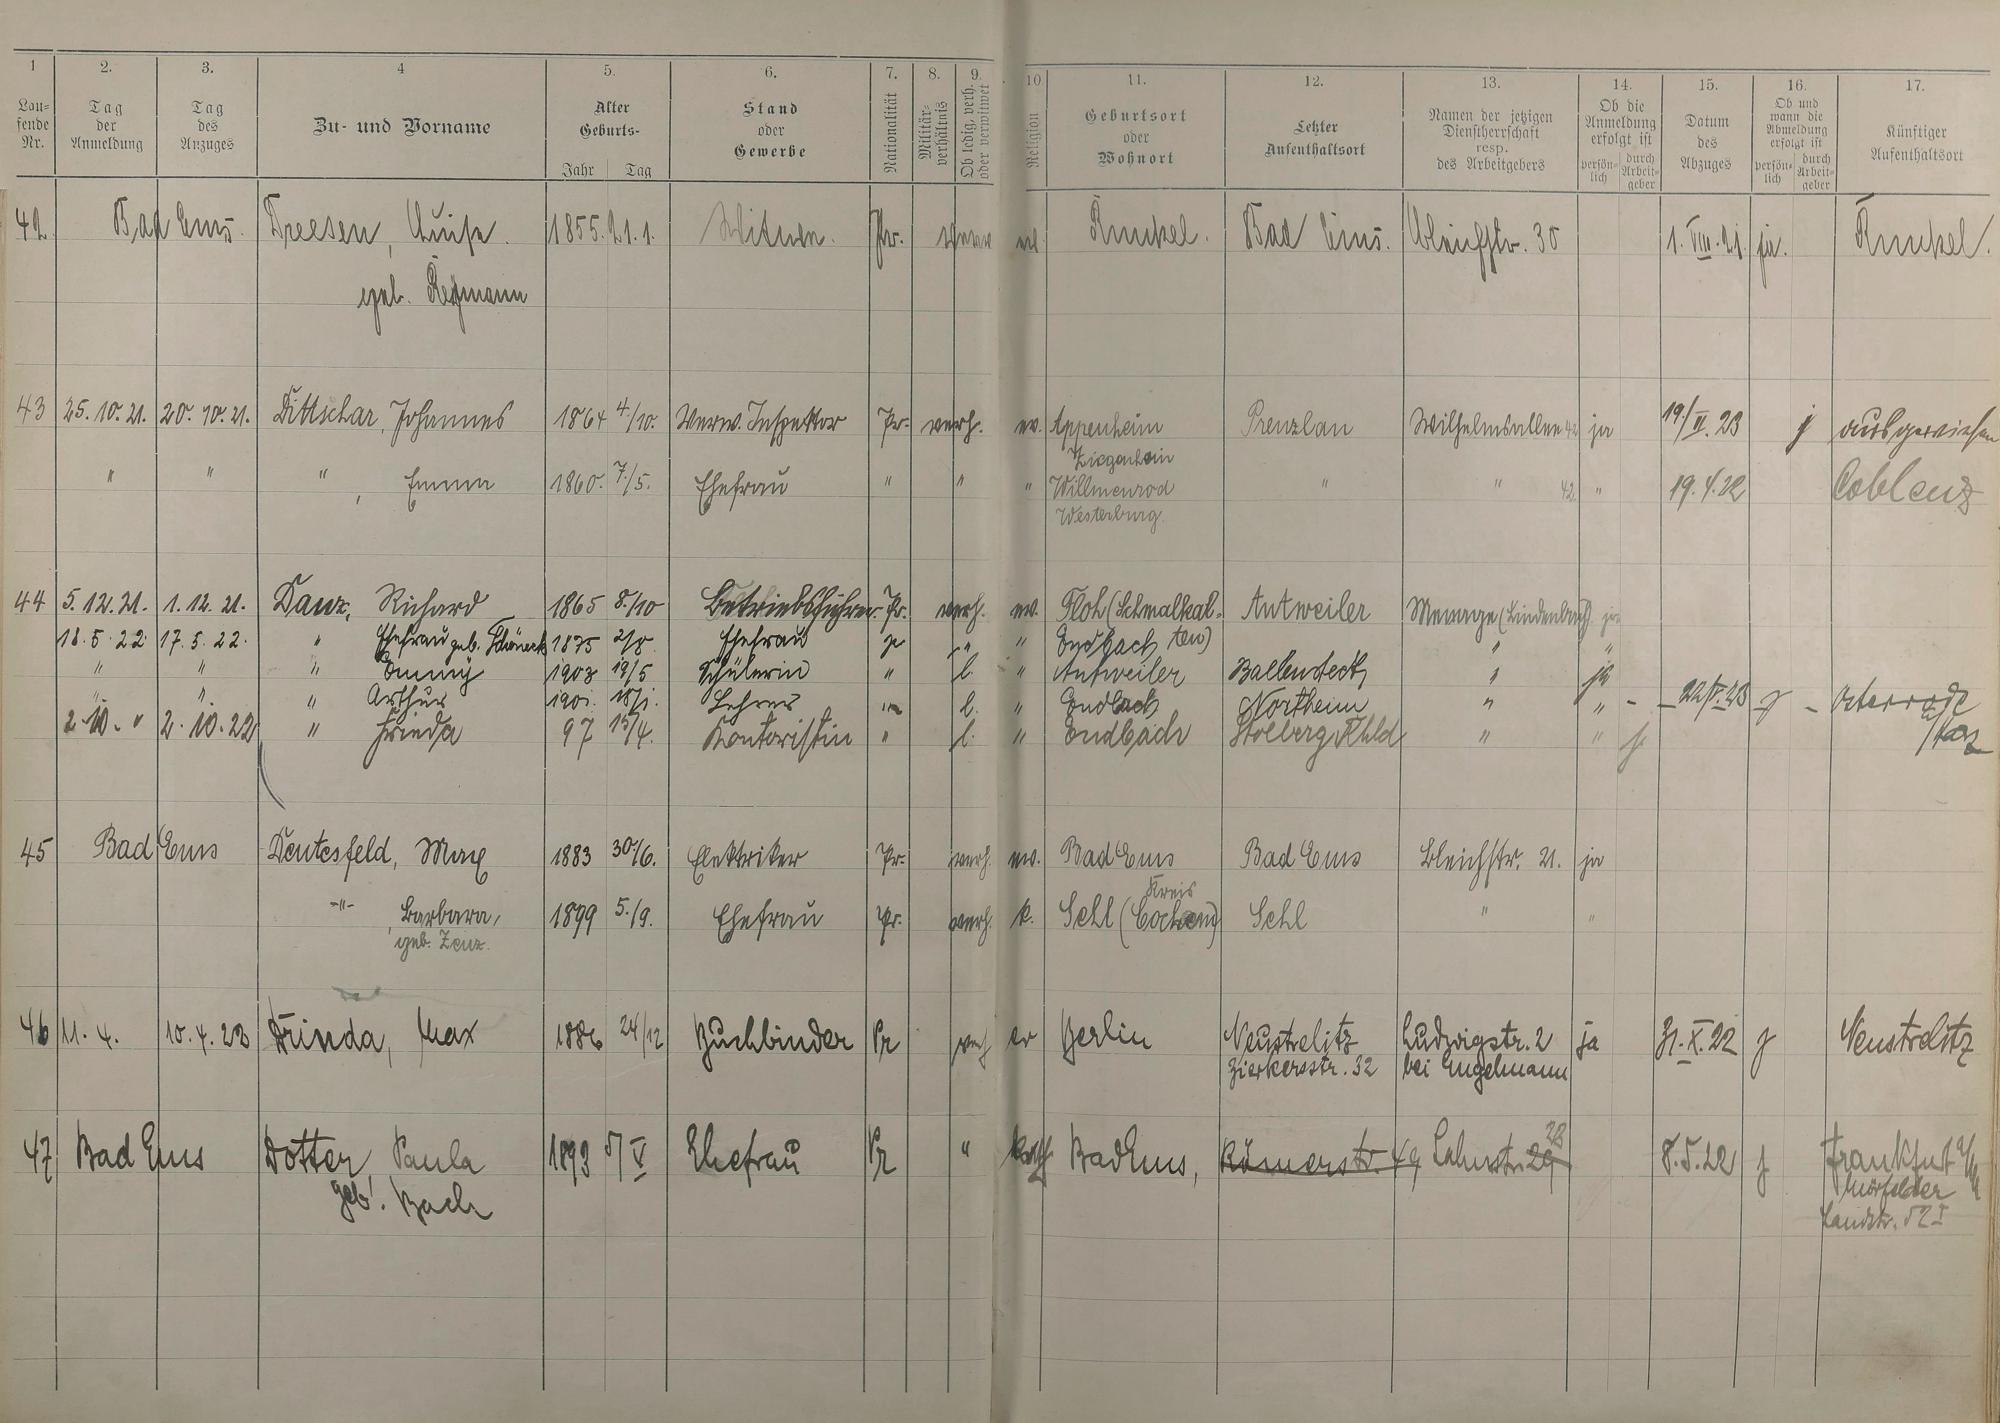 1 2. 3. 4 5. 6. 7. 8. 9. 10 11. 12. 13. 14. 15. 16. 17.
Lau-
fende
Nr.
Tag
der
Anmeldung
Tag
des
Anzuges
Zu- und Vorname
Alter
Geburts-
Jahr Tag
Stand
oder
Gewerbe
Nationalität
Militär-
verhältnis
Ob ledig, verh.
oder verwitwet
Religion
Geburtsort
oder
Wohnort
Letzter
Aufenthaltsort
Namen der jetzigen
Dienstherrschaft
resp.
des Arbeitgebers
Ob die
Anmeldung
erfolgt ist
persön-
lich
durch
Arbeit-
geber
Datum
des
Abzuges
Ob und
wann die
Abmeldung
erfolgt ist
persön-
lich
durch
Arbeit-
geber
Künftiger
Aufenthaltsort
42. Bad Ems. Dreesen, Luise. 1855. 21.1. Witwe. Pr. ev. Runkel. Bad Ems. Bleichstr. 30 1. VIII. 21. ja. Runkel.
geb.
43 25. 10. 21. 20. 10. 21. Dittschar, Johannes 1864 4./10. Verw. Inspektor Pr. verh. ev. Appenheim Prenzlau Wilhelmsallee 42 ja 19/II. 23 j ausgewiesen
Ziegenhein
" " " , Emma 1860. 7./5. Ehefrau " " " Willmenrod " " 42 " 19.4.22 Coblenz
Westerburg.
44 5. 12. 21. 1. 12. 21. Danz, Richard 1865 8./10 Betriebsführer Pr. verh. ev. Floh (Schmalkal- Antweiler Menage (Lindenbach) ja
18. 5. 22 17. 5. 22. " Ehefrau geb. Schöneck 1875 2/8 Ehefrau " " Endbach ten) " "
" " " Emmy 1903 19/5 Schülerin " l. " Antweiler Ballenstedt " ja
" " " Arthur 1901. 18/1. Lehrer " l. " Endbach Northeim " " - 22/V. 23 j - Osterrode
2. 10. " 2. 10. 22 " Frieda 97 15/4. Kontoristin " l. " Endbach Stolberg Rhld " " a/Harz
45 Bad Ems Deutesfeld, Max 1883 30./6. Elektriker Pr. verh. ev. Bad Ems Bad Ems Bleichstr. 21. ja
Kreis
-"- , Barbara, 1899 5./9. Ehefrau Pr. verh. k. Sehl (Cochem) Sehl " "
geb. Zenz.
46 11. 4. 10. 4. 22 Drinda, Max 1886 24/12 Buchbinder Pr verh ev Berlin Neustrelitz Ludwigstr. 2 ja 31. X. 22 j Neustrelitz
Zierkerstr. 32 bei Engelmann
28
47 Bad Ems Dotter, Paula 1893 5/V Ehefrau Pr " kath Bad Ems, Römerstr. 49 Lahnstr. 29 8. 5. 22 j Frankfurt a/M
geb. Bach Mörfelder
Landstr. 52 I